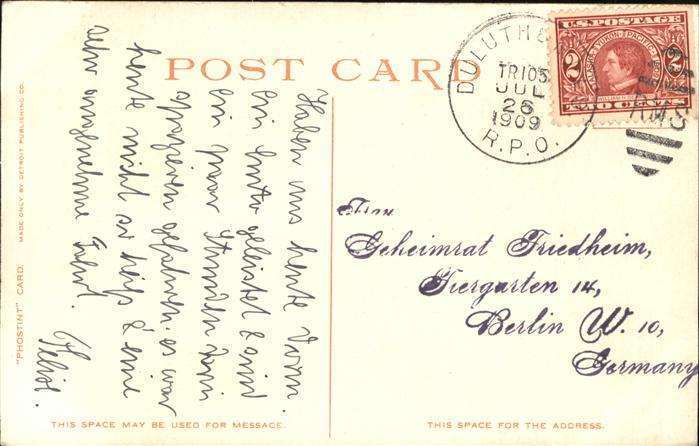 POST CARD
Haben uns heute Vorm.
ein Auto geleistet & sind
ein paar Stunden darin
spazieren gefahren. es war
heute nicht so heiß & eine
sehr angenehme Fahrt.
DULUTH &
TR105
JUL
26
1909
R.P.O.
RMS
U.S. POSTAGE
ALASKA-YUKON-PACIFIC
2 2
TWO CENTS
Frau
Geheimrat Friedheim,
Tiergarten 14,
Berlin W. 10,
Germany
THIS SPACE MAY BE USED FOR MESSAGE.
THIS SPACE FOR THE ADDRESS.
"PHOSTINT" CARD.
MADE ONLY BY DETROIT PUBLISHING CO.